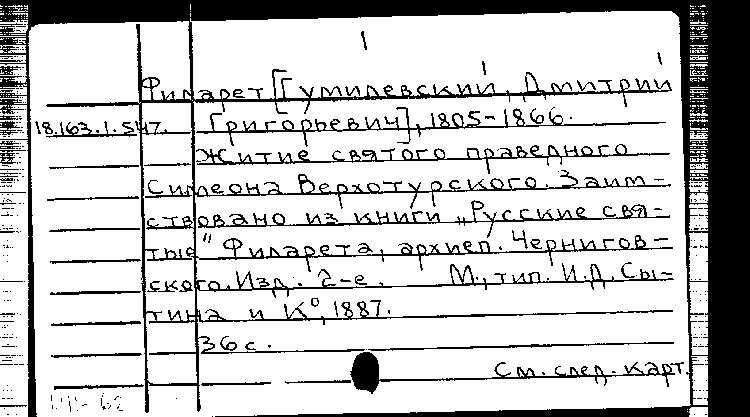 Филарет [Гумилевский, Дмитрий
18.163.1.547. Григорьевич], 1805-1866.
Житие святого праведного
Симеона Верхотурского. Заим-
ствовано из книги „Русские свя-
тые" Филарета, архиеп. Чернигов-
ского. Изд. 2-е. М., тип. И.Д. Сы-
тина и К°, 1887.
36 с.
См. след. карт.